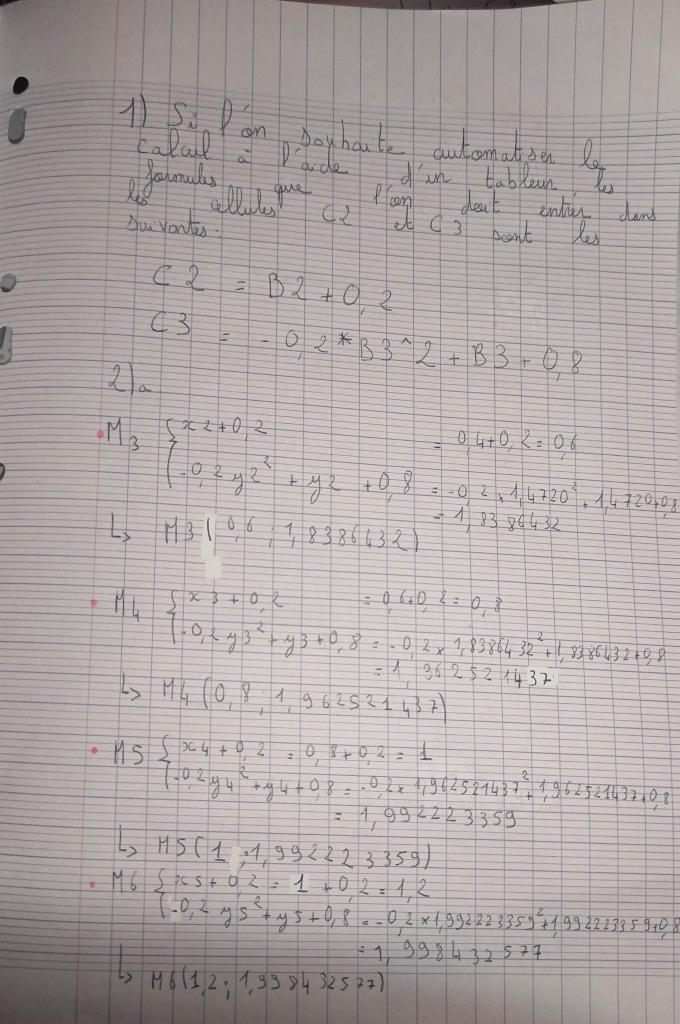 1) Si l'on souhaite automatiser le
calcul à l'aide d'un tableur, les
formules que l'on doit entrer dans
les cellules C2 et C3 sont les
suivantes.
C2 = B2 + 0,2
C3 = -0,2*B3^2 + B3 + 0,8
2)a
• M3 { x2+0,2 = 0,4+0,2 = 0,6
-0,2 y2² + y2 + 0,8 = -0,2 × 1,4720² + 1,4720+0,8
= 1,8386432
↳ M3 (0,6 ; 1,8386432)
• M4 { x3+0,2 = 0,6+0,2 = 0,8
-0,2 y3² + y3 + 0,8 = -0,2 × 1,8386432² + 1,8386432+0,8
= 1,962521437
↳ M4 (0,8 ; 1,962521437)
• M5 { x4+0,2 = 0,8+0,2 = 1
-0,2 y4² + y4 + 0,8 = -0,2 × 1,962521437² + 1,962521437+0,8
= 1,992223359
↳ M5 (1 ; 1,992223359)
• M6 { x5+0,2 = 1 + 0,2 = 1,2
-0,2 y5² + y5 + 0,8 = -0,2 × 1,992223359² + 1,992223359+0,8
= 1,998432577
↳ M6 (1,2 ; 1,998432577)